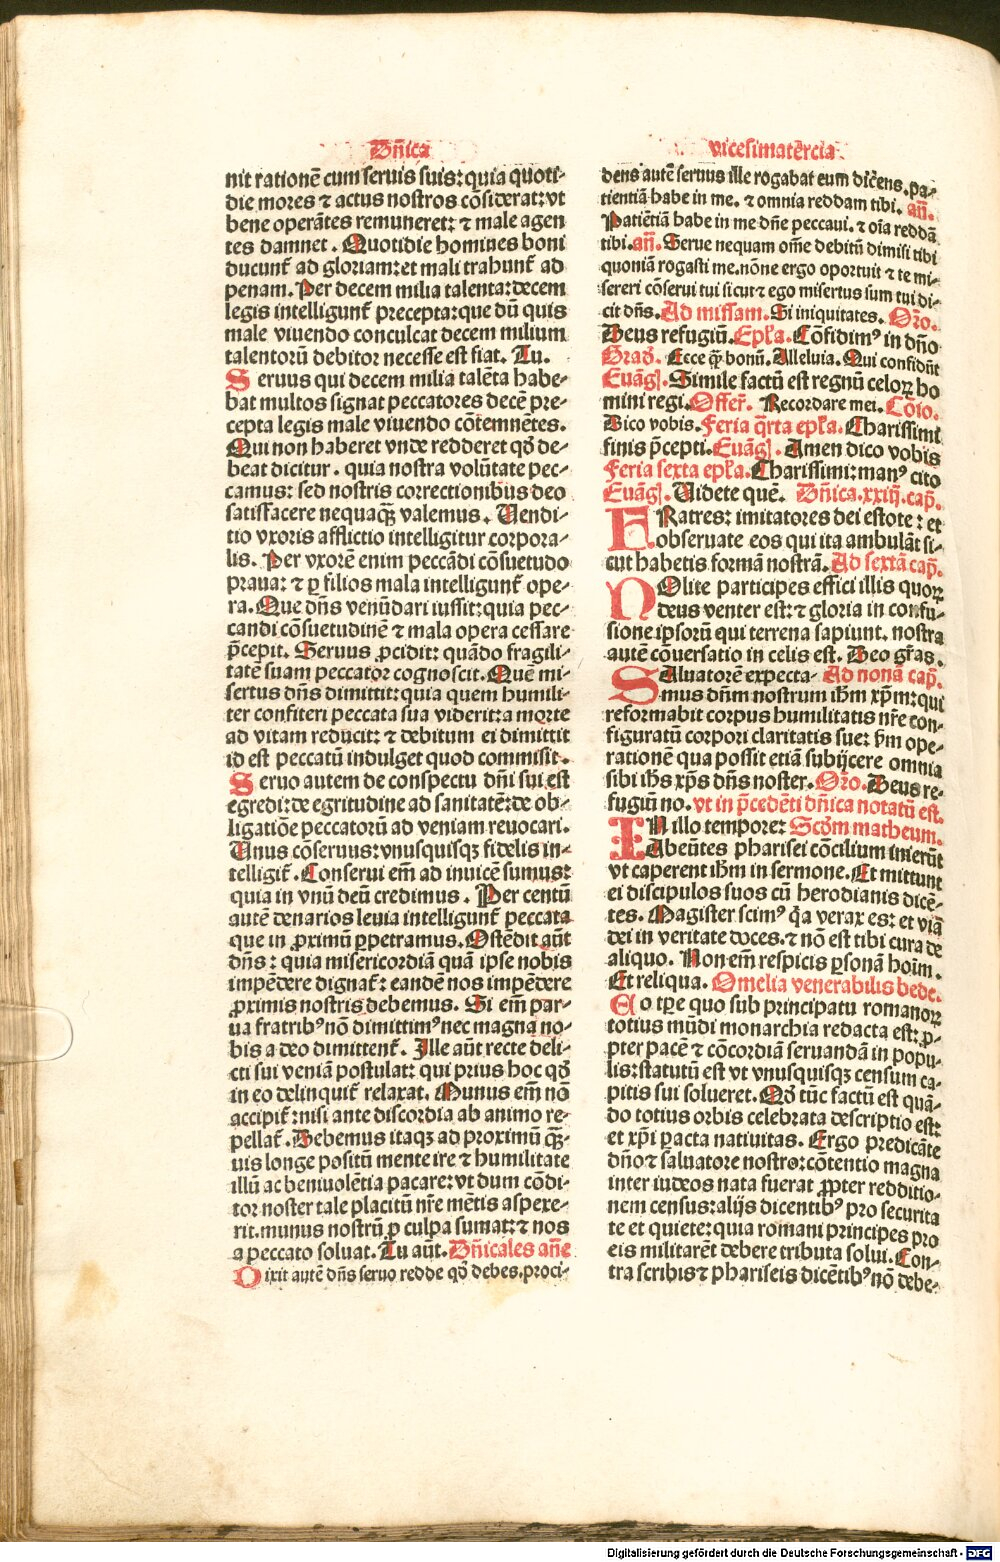 Dñica
nit rationē cum seruis suis: quia quoti-
die mores ⁊ actus nostros cōsiderat: vt
bene operātes remuneret: ⁊ male agen
tes damnet. Quotidie homines boni
ducunt̄ ad gloriam: et mali trahunt̄ ad
penam. Per decem milia talenta: decem
legis intelligunt̄ precepta: que dū quis
male viuendo conculcat decem milium
talentorū debitor necesse est fiat. Tu.
Seruus qui decem milia talēta habe-
bat multos signat peccatores decē pre-
cepta legis male viuendo cōtemnētes.
Qui non haberet vnde redderet qd̄ de-
beat dicitur. quia nostra volūtate pec-
camus: sed nostris correctionibus deo
satisfacere nequaqꝫ valemus. Uendi-
tio vxoris afflictio intelligitur corpora-
lis. Per vxorē enim peccādi cōsuetudo
praua: ⁊ ꝑ filios mala intelligunt̄ ope-
ra. Que dn̄s venūdari iussit: quia pec-
candi cōsuetudinē ⁊ mala opera cessare
p̄cepit. Seruus ꝓcidit: quādo fragili-
tatē suam peccator cognoscit. Quē mi-
sertus dn̄s dimittit: quia quem humili-
ter confiteri peccata sua viderit: a morte
ad vitam reducit: ⁊ debitum ei dimittit
id est peccatū indulget quod commisit.
Seruo autem de conspectu dn̄i sui est
egredi: de egritudine ad sanitatē: de ob-
ligatiōe peccatorū ad veniam reuocari.
Unus cōseruus: vnusquisqꝫ fidelis in-
telligit̄. Conserui em̄ ad inuicē sumus:
quia in vnū deū credimus. Per centū
autē denarios leuia intelligunt̄ peccata
que in ꝓximū ꝑpetramus. Ostēdit aūt
dn̄s: quia misericordiā quā ipse nobis
impēdere dignat̄: eandē nos impēdere
ꝓximis nostris debemus. Si em̄ par-
ua fratribꝰ nō dimittimꝰ nec magna no-
bis a deo dimittent̄. Ille aūt recte deli-
cti sui veniam postulat: qui prius hoc qd̄
in eo delinquit̄ relaxat. Munus em̄ nō
accipit̄: nisi ante discordia ab animo re-
pellat̄. Debemus itaqꝫ ad proximū qꝫ-
uis longe positū mente ire ⁊ humilitate
illū ac beniuolētia pacare: vt dum cōdi-
tor noster tale placitū nr̄e mētis aspexe-
rit. munus nostrū ꝓ culpa sumat: ⁊ nos
a peccato soluat. Tu aūt. Dn̄icales an̄e
Dixit autē dn̄s seruo redde qd̄ debes. proci-
vicesimatērcia
dens autē seruus ille rogabat eum dicēns. pa-
tientiā habe in me. ⁊ omnia reddam tibi. an̄.
Patiētiā habe in me dn̄e peccaui. ⁊ oīa reddā
tibi. an̄. Serue nequam om̄e debitū dimisi tibi
quoniā rogasti me. nōne ergo oportuit ⁊ te mi-
sereri cōserui tui sicut ⁊ ego misertus sum tui di-
cit dn̄s. Ad missam. Si iniquitates. Oro.
Deus refugiū. Epl̄a. Cōfidimꝰ in dn̄o
Grad̄. Ecce qꝫ bonū. Alleluia. Qui confidūt
Euāgl̄. Simile factū est regnū celoꝝ ho
mini regi. Offer̄. Recordare mei. Cōio.
Dico vobis. Feria q̄rta epl̄a. Charissimi
finis p̄cepti. Euāgl̄. Amen dico vobis
Feria sexta epl̄a. Charissimi: manꝰ cito
Euāgl̄. Uidete quē. Dn̄ica. xxiij. cap̄.
FRatres: imitatores dei estote: et
obseruate eos qui ita ambulāt si-
cut habetis formā nostrā. Ad sextā cap̄.
NOlite participes effici illis quoꝝ
deus venter est: ⁊ gloria in confu-
sione ipsorū qui terrena sapiunt. nostra
autē cōuersatio in celis est. Deo gr̄as.
SAluatorē expecta- Ad nonā cap̄.
mus dn̄m nostrum ih̄m xp̄m: qui
reformabit corpus humilitatis nr̄e con-
figuratū corpori claritatis sue: s̄m ope-
rationē qua possit etiā subijcere omnia
sibi ih̄s xp̄s dn̄s noster. Oro. Deus re-
fugiū no. vt in p̄cedēti dn̄ica notatū est.
IN illo tempore: Scd̄m matheum.
Abeūtes pharisei cōcilium inierūt
vt caperent ih̄m in sermone. Et mittunt
ei discipulos suos cū herodianis dicē-
tes. Magister scimꝰ q̄a verax es: et viā
dei in veritate doces. ⁊ nō est tibi cura de
aliquo. Non em̄ respicis ꝑsonā hoīm.
Et reliqua. Omelia venerabilis bede.
EO tp̄e quo sub principatu romanoꝝ
totius mūdi monarchia redacta est: ꝓ-
pter pacē ⁊ cōcordiā seruandā in popu-
lis: statutū est vt vnusquisqꝫ censum ca-
pitis sui solueret. Qd̄ tūc factū est quā-
do totius orbis celebrata descriptio est:
et xp̄i pacta natiuitas. Ergo predicāte
dn̄o ⁊ saluatore nostro: cōtentio magna
inter iudeos nata fuerat ꝓpter redditio-
nem census: alijs dicentibꝰ pro securita
te et quiete: quia romani principes pro
eis militarēt debere tributa solui. Con-
tra scribis ⁊ phariseis dicētibꝰ nō debe-
Digitalisierung gefördert durch die Deutsche Forschungsgemeinschaft - DFG